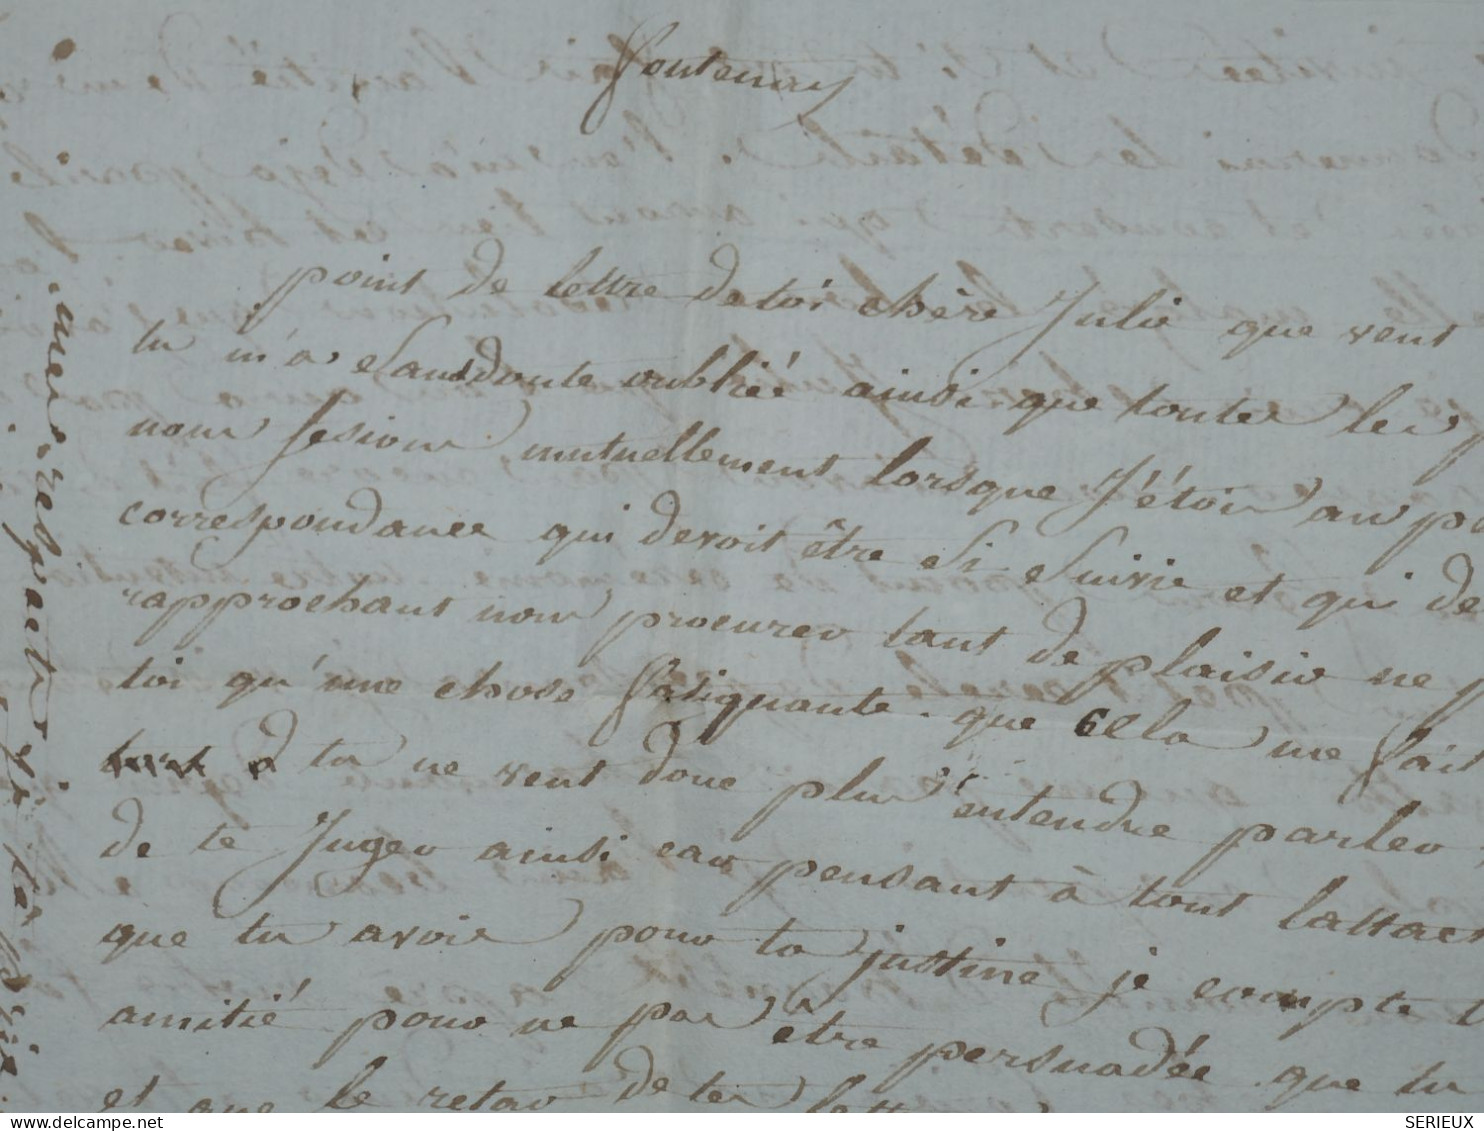 fontenay
point de lettre de toi chère Julie que veut
tu m'a sansdoute oubliée ainsi que toutes les p
nous fesions mutuellement lorsque J'étois au p
correspondance qui devoit être si suivie et qui de
rapprochant nous procurer tant de plaisir ne p
toi qu'une chose fatiguante. que cela me fait
tu ne veut donc plus entendre parler
de te Juger ainsi car pensant à tout lattac
que tu avois pour ta justine je compte t
amitié pour ne pas être persuadée que tu
et que le retar de tes lett
mes respects
SERIEUX
www.delcampe.net